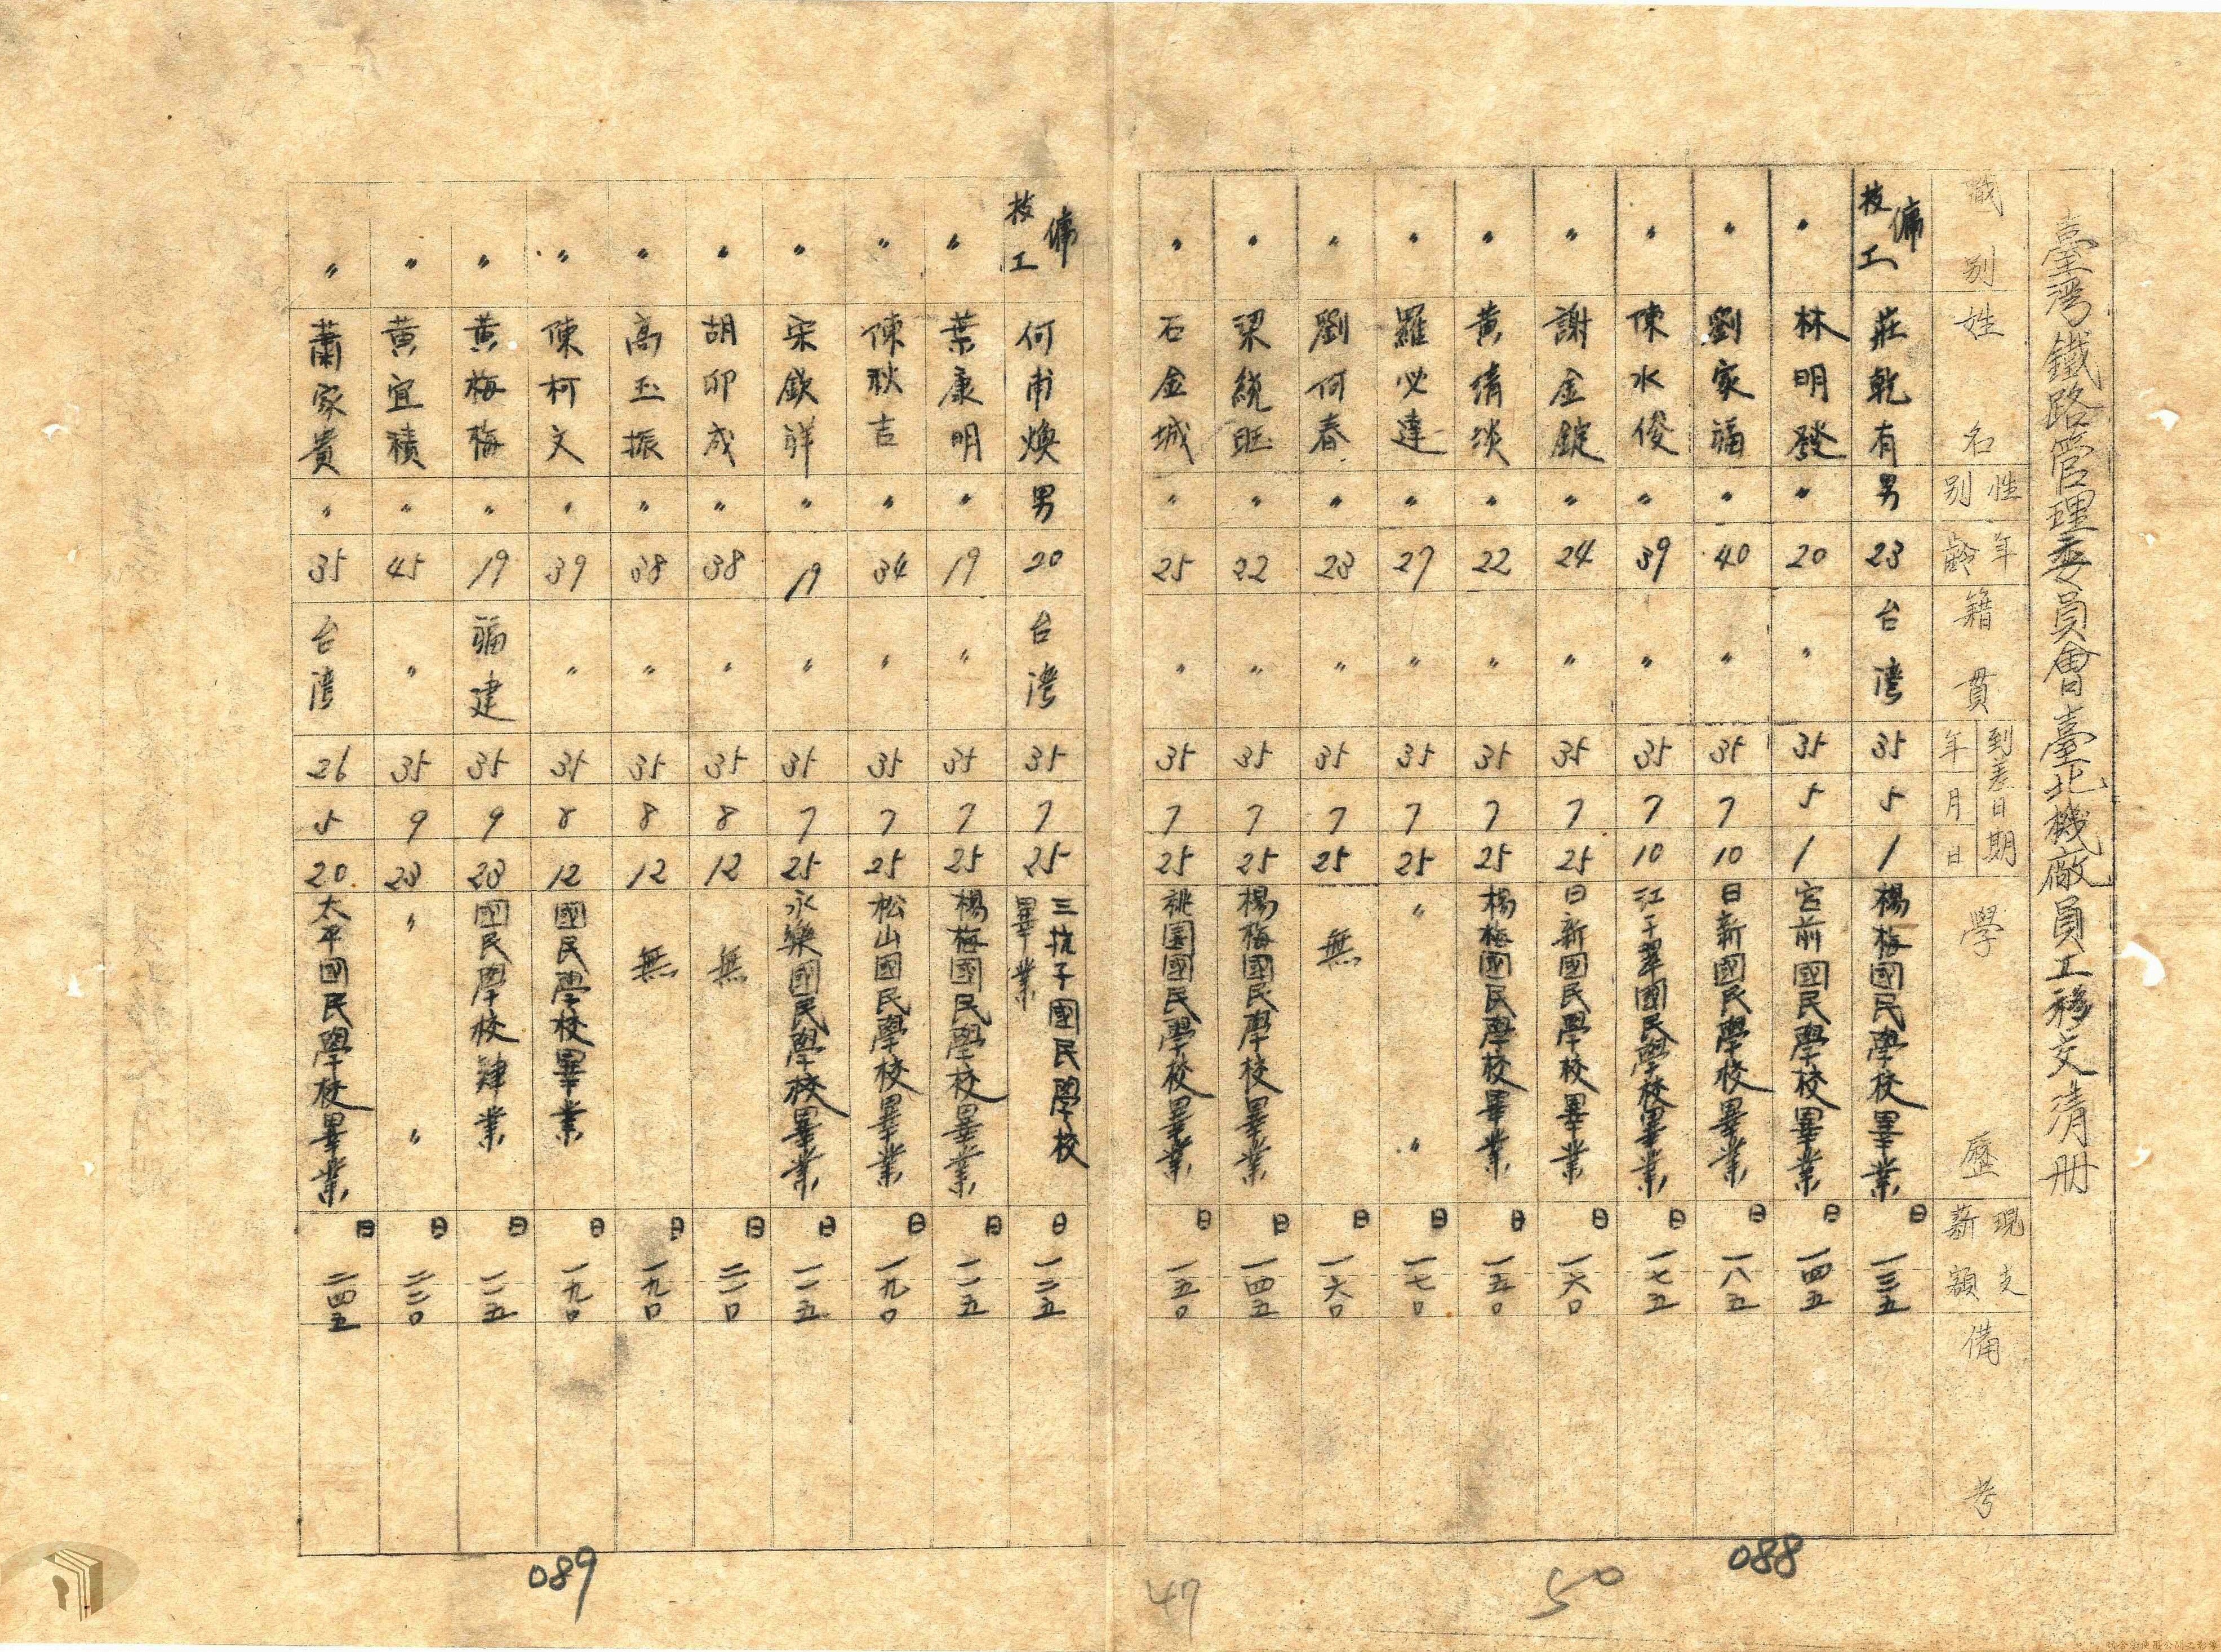 臺灣鐵路管理委員會臺北機廠員工移交清册
職別 姓名 性別 年齡 籍貫 到差日期 年 月 日 學歷 現支薪額 備考
備技工 莊乾有 男 23 台灣 35 5 1 楊梅國民學校畢業 日一三五
〃 林明發 〃 20 〃 35 5 1 宮前國民學校畢業 日一四五
〃 劉家福 〃 40 〃 35 7 10 日新國民學校畢業 日一八五
〃 陳水俊 〃 39 〃 35 7 10 江子翠國民學校畢業 日一七五
〃 謝金錠 〃 24 〃 35 7 25 日新國民學校畢業 日一六〇
〃 黃清淡 〃 22 〃 35 7 25 楊梅國民學校畢業 日一五〇
〃 羅必達 〃 27 〃 35 7 25 〃 〃 日一七〇
〃 劉何春 〃 23 〃 35 7 25 無 日一六〇
〃 梁統旺 〃 22 〃 35 7 25 楊梅國民學校畢業 日一四五
〃 石金城 〃 25 〃 35 7 25 桃園國民學校畢業 日一五〇
088
50
47
備技工 何甫煥 男 20 台灣 35 7 25 三抗子國民學校畢業 日一二五
〃 葉康明 〃 19 〃 35 7 25 楊梅國民學校畢業 日一一五
〃 陳秋吉 〃 34 〃 35 7 25 松山國民學校畢業 日一九〇
〃 宋欽祥 〃 19 〃 35 7 25 永樂國民學校畢業 日一一五
〃 胡卯成 〃 38 〃 35 8 12 無 日二一〇
〃 高玉振 〃 38 〃 35 8 12 無 日一九〇
〃 陳柯文 〃 39 〃 35 8 12 國民學校畢業 日一九〇
〃 黃梅梅 〃 19 福建 35 9 23 國民學校肄業 日一一五
〃 黃宜積 〃 45 〃 35 9 23 〃 〃 日二二〇
〃 蕭家貴 〃 35 台灣 26 5 20 太平國民學校畢業 日二四五
089